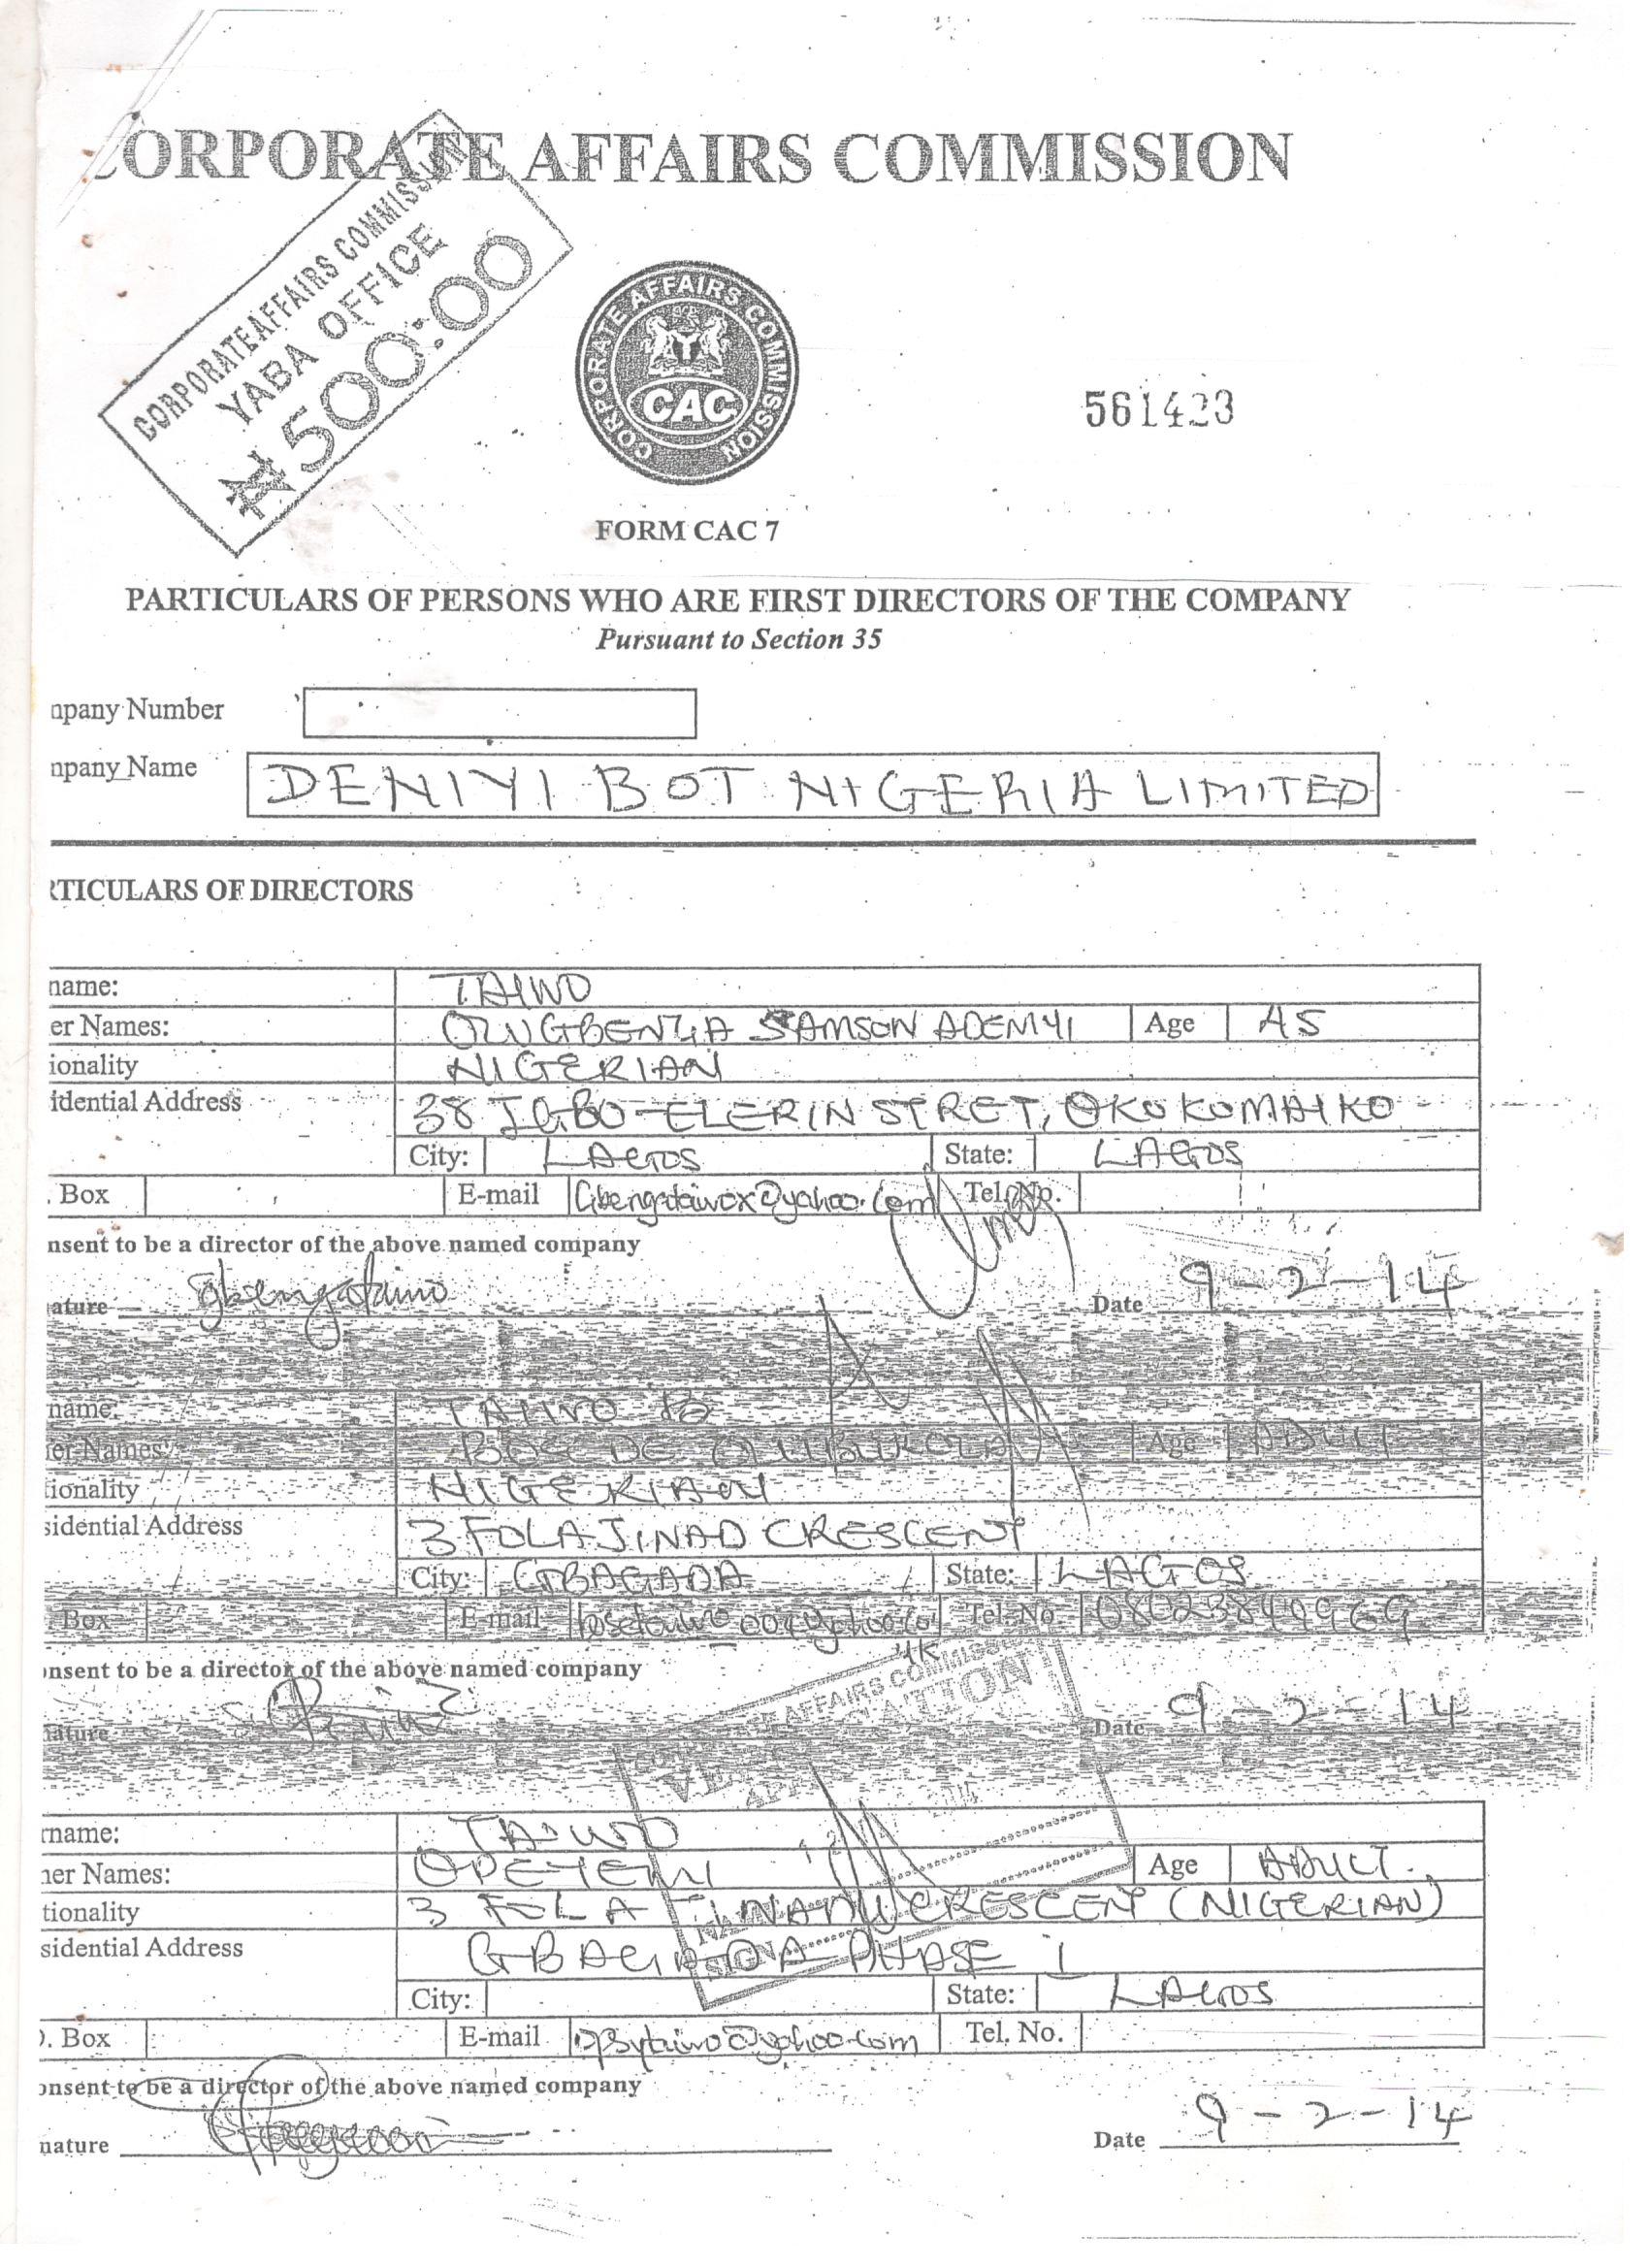 CORPORATE AFFAIRS COMMISSION
CORPORATE AFFAIRS COMMISSION
YABA OFFICE
₦500:00
CORPORATE AFFAIRS COMMISSION
CAC
561423
FORM CAC 7
PARTICULARS OF PERSONS WHO ARE FIRST DIRECTORS OF THE COMPANY
Pursuant to Section 35
mpany Number
mpany Name DENIYI BOT NIGERIA LIMITED
RTICULARS OF DIRECTORS
name: TAIWO
er Names: OLUGBENGA SAMSON ADENIYI Age 45
ionality NIGERIAN
idential Address 38 IGBO-ELERIN STRET, OKOKOMAIKO
City: LAGOS State: LAGOS
. Box E-mail Gbengataiwox@yahoo.com Tel. No.
nsent to be a director of the above named company
ature gbengataiwo Date 9-2-14
name: TAIWO
er Names: Age ADULT
tionality NIGERIAN
sidential Address 3 FOLA JINAD CRESCENT
City: GBAGADA State: LAGOS
Box E-mail Tel. No
onsent to be a director of the above named company
AFFAIRS COMMISSION
nature Date 9-2-14
rname: TAIWO
her Names: OPEYEMI Age ADULT
tionality 3 FOLA JINADU CRESCENT (NIGERIAN)
sidential Address GBAGADA PHASE 1
City: State: LAGOS
). Box E-mail Tel. No.
onsent to be a director of the above named company
nature Date 9-2-14